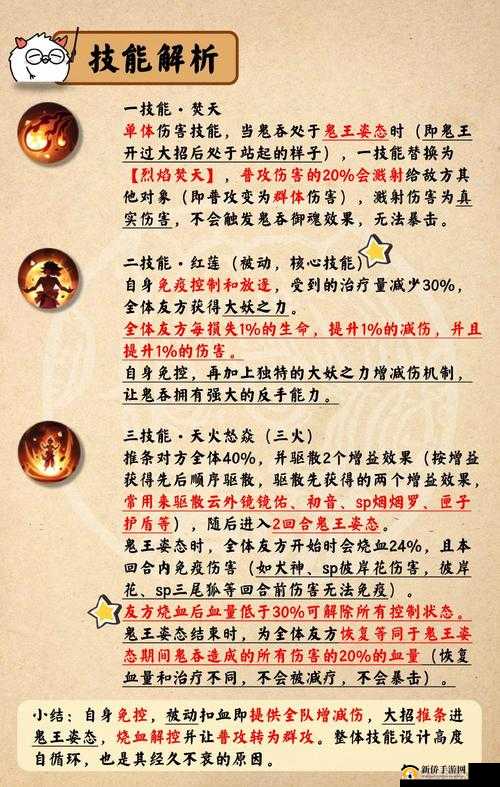 技能解析
一技能·焚天
单体伤害技能，当鬼吞处于鬼王姿态时（即鬼王
开过大招后处于站起的样子），一技能替换为
【烈焰焚天】，普攻伤害的20%会溅射给敌方其
他对象（即普攻变为群体伤害），溅射伤害为真
实伤害，不会触发鬼吞御魂效果，无法暴击。
二技能·红莲（被动，核心技能）
自身免疫控制和放逐，受到的治疗量减少30%，
全体友方获得大妖之力。
全体友方每损失1%的生命，提升1%的减伤，并且
提升1%的伤害。
自身免控，再加上独特的大妖之力增减伤机制，
让鬼吞拥有强大的反手能力。
三技能·天火怒焱（三火）
推条对方全体40%，并驱散2个增益效果（按增益
获得先后顺序驱散，驱散先获得的两个增益效果，
常用来驱散云外镜镜佑、初音、sp烟烟罗、匣子
护盾等），随后进入2回合鬼王姿态。
鬼王姿态时，全体友方开始时会烧血24%，且本
回合内免疫伤害（如犬神、sp彼岸花伤害，彼岸
花、sp三尾狐等回合前伤害无法免疫）。
友方烧血后血量低于30%可解除所有控制状态。
鬼王姿态结束时，为全体友方恢复等同于鬼王姿
态期间鬼吞造成的所有伤害的20%的血量（恢复
血量和治疗不同，不会被减疗，不会暴击）。
小结：自身免控，被动扣血即提供全队增减伤，大招推条进
鬼王姿态，烧血解控并让普攻转为群攻。整体技能设计高度
自循环，也是其经久不衰的原因。
新侨手游网